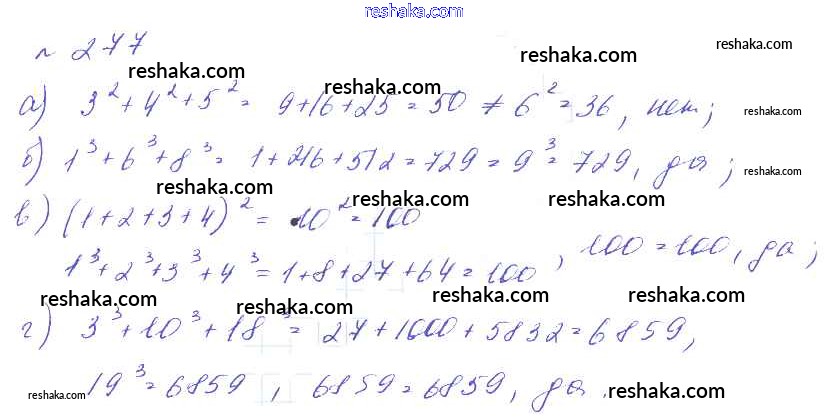 reshaka.com
№ 277
reshaka.com reshaka.com reshaka.com reshaka.com
а) 3² + 4² + 5² = 9+16+25 = 50 ≠ 6² = 36, нет;
reshaka.com
б) 1³ + 6³ + 8³ = 1+216+512 = 729 = 9³ = 729, да;
reshaka.com
reshaka.com reshaka.com
в) (1+2+3+4)² = 10² = 100
1³+2³+3³+4³ = 1+8+27+64 = 100, 100 = 100, да;
reshaka.com reshaka.com reshaka.com
г) 3³+10³+18³ = 27+1000+5832 = 6859,
19³ = 6859, 6859 = 6859, да.
reshaka.com reshaka.com